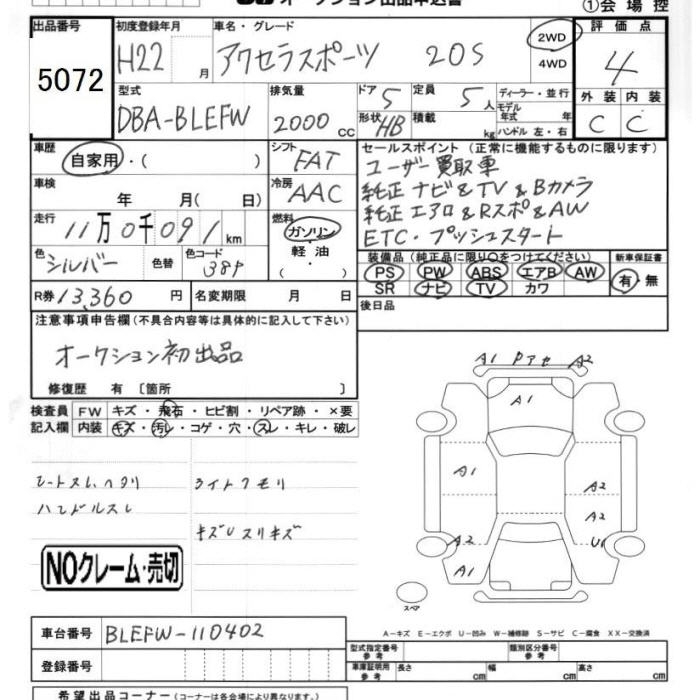 オークション出品申込書
①会場控
出品番号
5072
初度登録年月
H22 月
車名・グレード
アクセラスポーツ 20S
2WD
4WD
評価点
4
型式
DBA-BLEFW
排気量
2000 cc
ドア 5
定員 5人
形状 HB
積載 kg
ディーラー・並行
モデル年式 年式
ハンドル 左・右
外装 内装
C C
車歴
自家用・( )
シフト
FAT
セールスポイント (正常に機能するものに限ります)
ユーザー買取車
純正ナビ&TV&Bカメラ
純正エアロ&Rスポ&AW
ETC・プッシュスタート
車検
年 月( 日)
冷房
AAC
走行
11万0千091km
燃料
ガソリン・軽油・( )
色
シルバー
色替
色コード
38P
装備品(純正品に限り○をつけてください)
新車保証書
PS PW ABS エアB AW
SR ナビ TV カワ
有・無
R券 13,360 円
名変期限 月 日
後日品
注意事項申告欄(不具合内容等は具体的に記入して下さい)
オークション初出品
修復歴 有 〔箇所 〕
検査員記入欄
FW キズ・飛石・ヒビ割・リペア跡・×要
内装 キズ・汚レ・コゲ・穴・スレ・キレ・破レ
シートスレ、ヘタリ
ハンドルスレ
ライトクモリ
キズUスリキズ
NOクレーム・売切
A1 Pアセ A2
A1
A1
A2
A2
A2
U1
A1
スペア
A-キズ E-エクボ U-凹み W-補修跡 S-サビ C-腐食 XX-交換済
車台番号
BLEFW-110402
登録番号
型式指定番号 参考
類別区分番号 参考
車庫証明用 参考
長さ cm
幅 cm
高さ cm
希望出品コーナー(コーナーは各会場により異なります。)